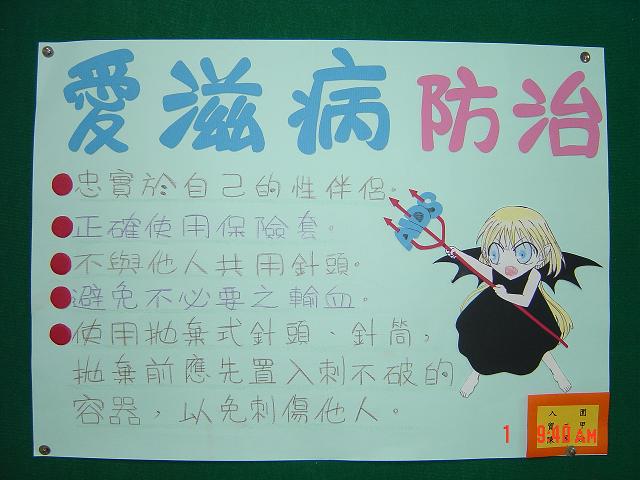 愛滋病防治
忠實於自己的性伴侶。
正確使用保險套。
不與他人共用針頭。
避免不必要之輸血。
使用拋棄式針頭、針筒，
拋棄前應先置入刺不破的
容器，以免刺傷他人。
AIDS
1 9:40 AM